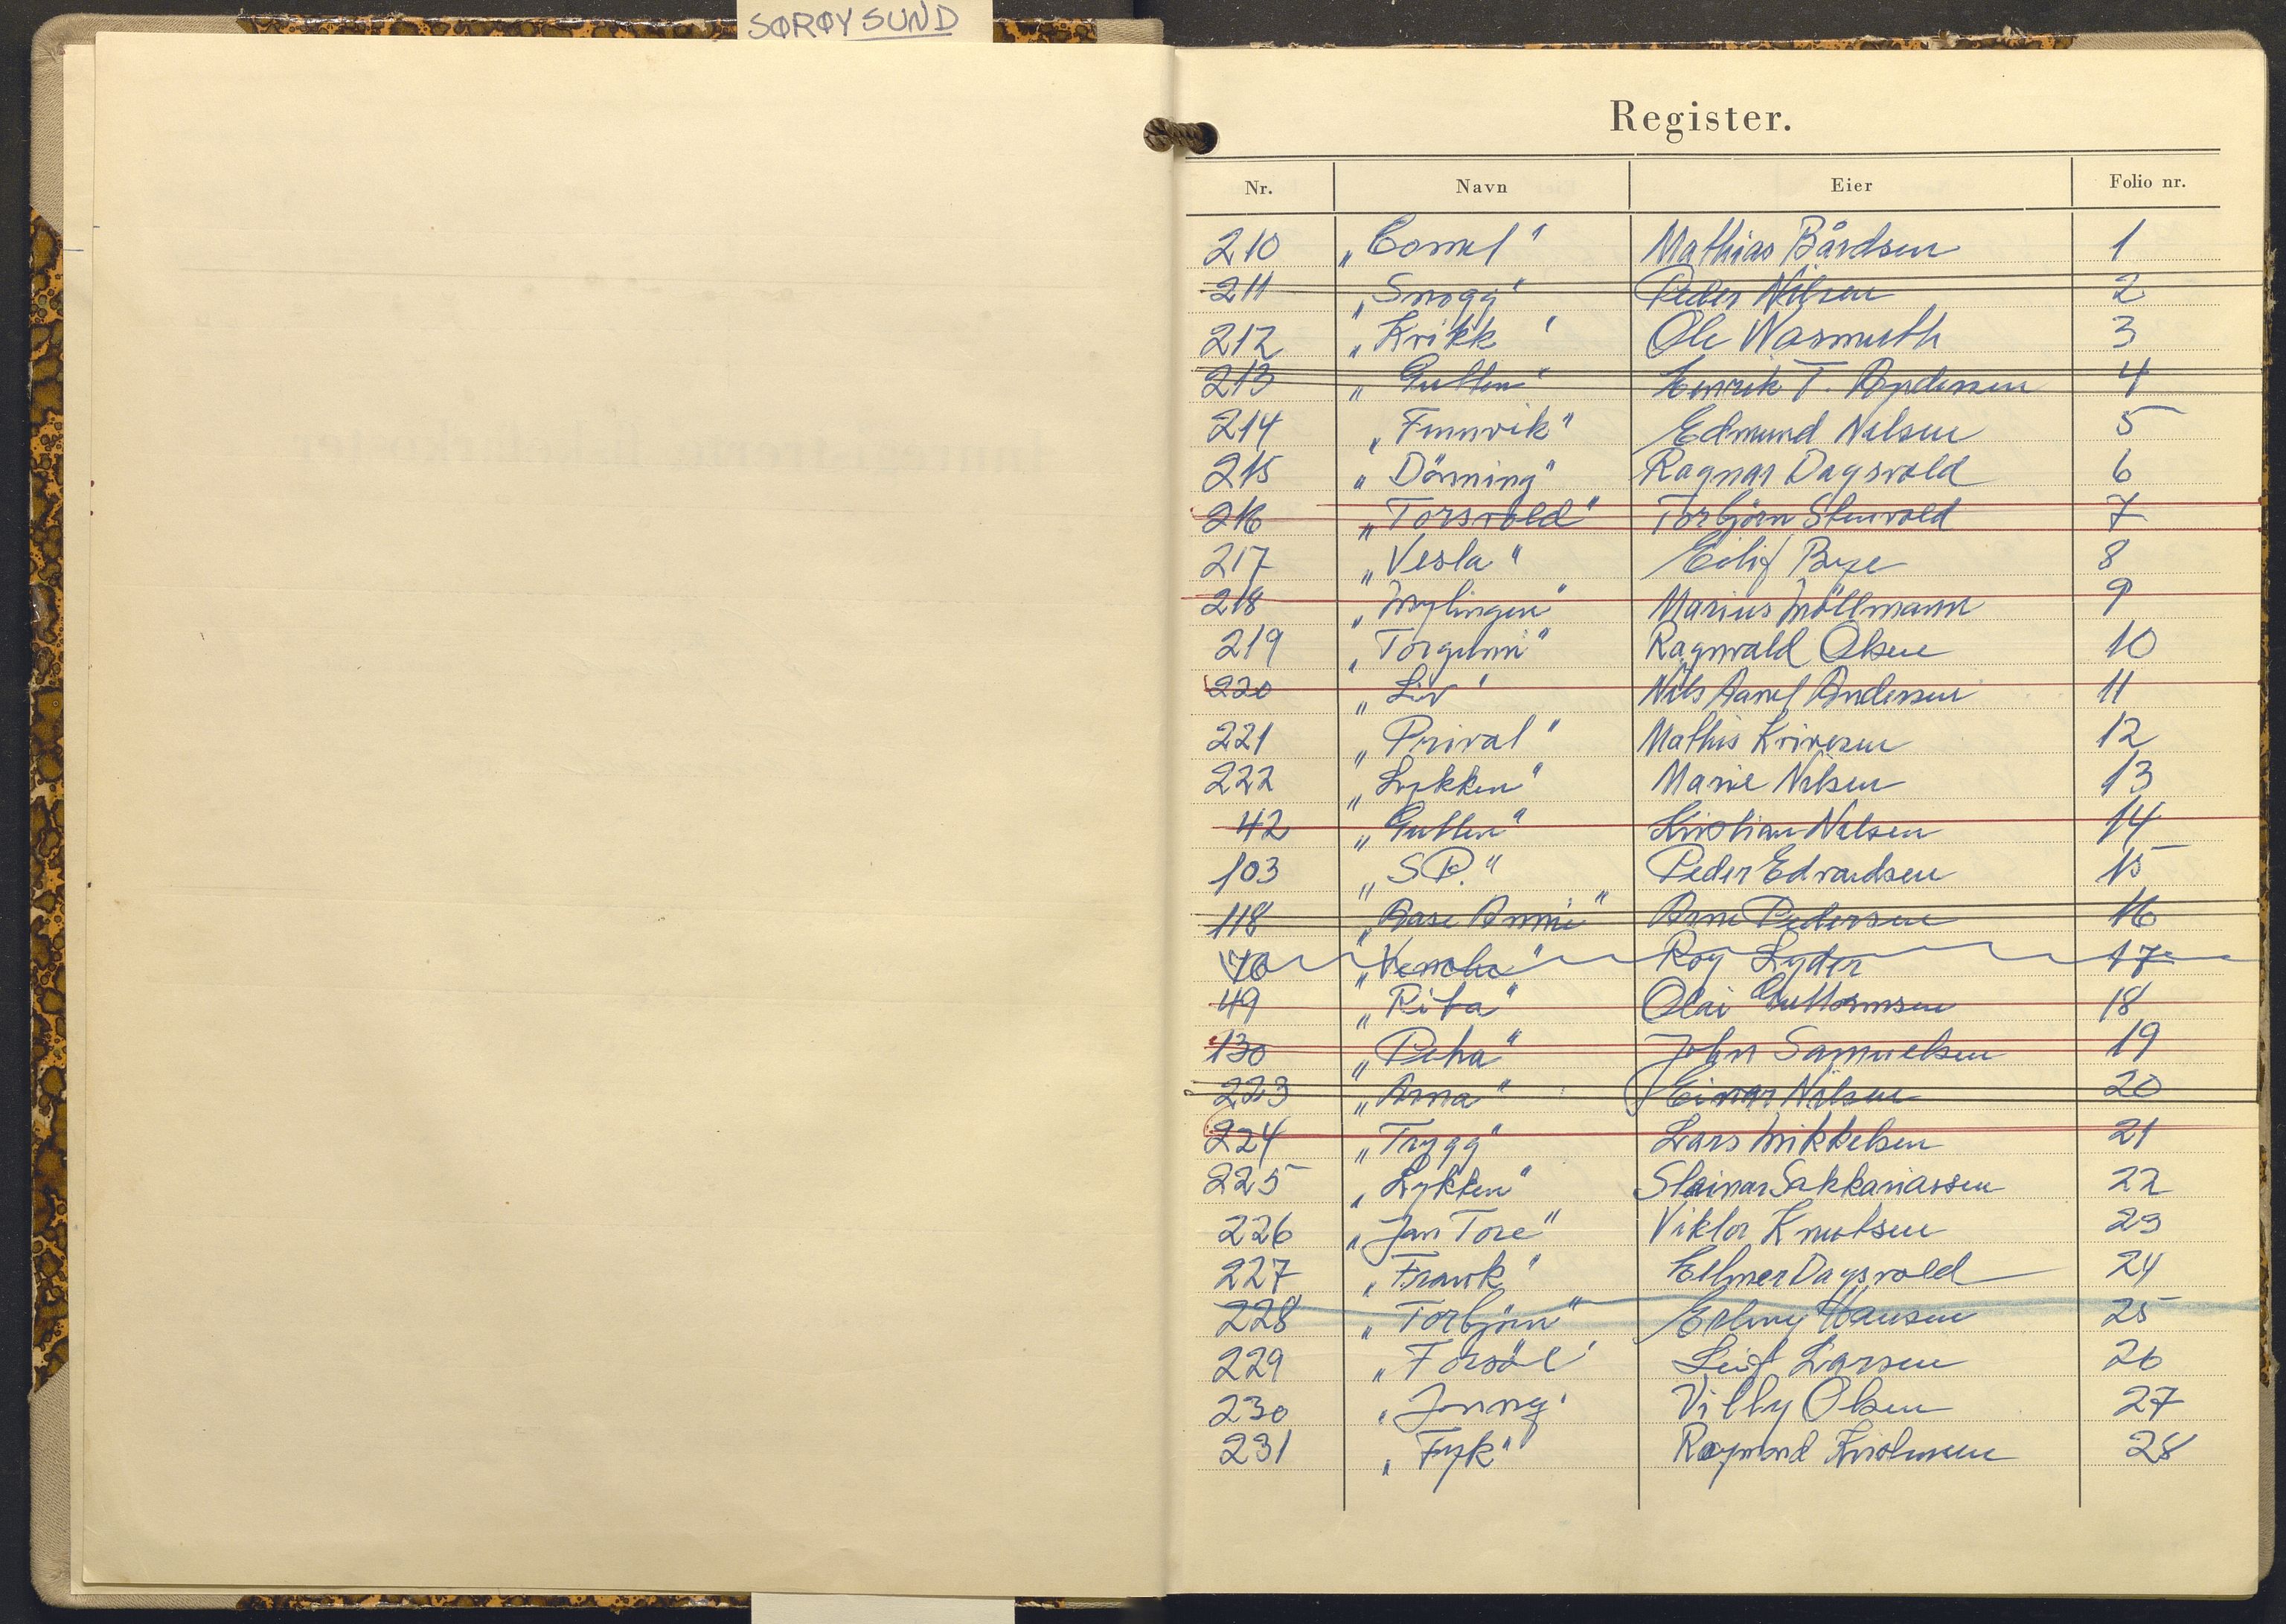 SØRØYSUND
Register.
Nr. Navn Eier Folio nr.
210 Mathias Bårdsen 1
211 „Snogg" Peder Nilsen 2
212 „Krikk" Ole Wasmuth 3
213 „Gutten" Henrik T. Andersen 4
214 „Finnvik" Edmund Nilsen 5
215 „Dönning" Ragnar Dagsvold 6
216 „Torsvold" Torbjörn Stenvold 7
217 „Vesla" Eilif Bye 8
218 „Mylingen" Marius Möllmann 9
219 „Torgunn" Ragnvald Olsen 10
220 „Liv" Nils Andersen 11
221 „Prival" Mathis 12
222 „Lykken" Marie Nilsen 13
42 „Gutten" Kristian Nilsen 14
103 „S P." Peder Edvardsen 15
118 „Aase Annie" Arne Pedersen 16
70 Roy Lyder 17
49 „Rita" Olai Guttormsen 18
130 „Peha" John Samuelsen 19
223 „Arna" Einar Nilsen 20
224 „Trygg" Lars Mikkelsen 21
225 „Lykken" Steinar Sakkariassen 22
226 „Jan Tore" Viktor Knutsen 23
227 „Frank" Ellmer Dagsvold 24
228 „Torbjörn" Erling Hansen 25
229 „Forsöl" Leif Larsen 26
230 „Jonny" Villy Olsen 27
231 „Fyk" Raymond Kristensen 28